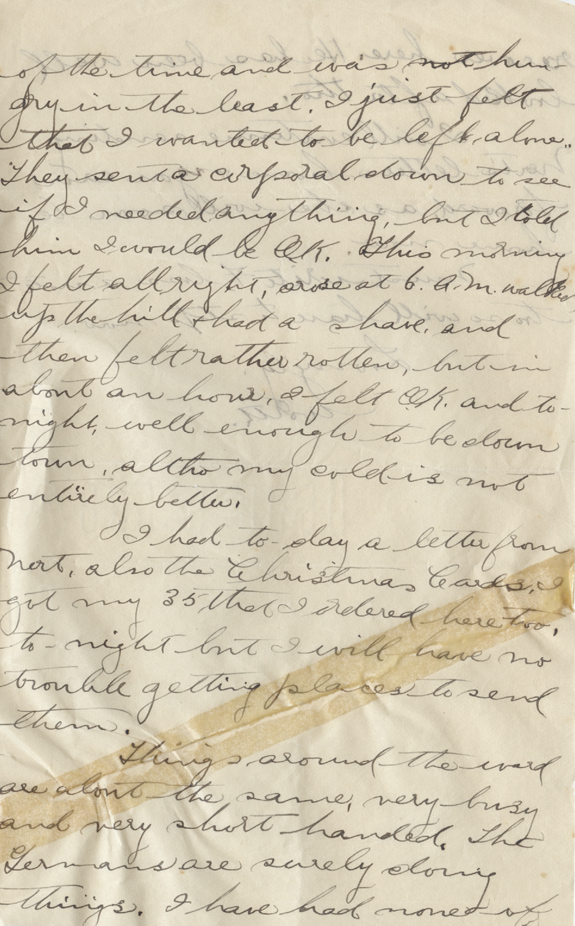 of the time and was not hun-
gry in the least. I just felt
that I wanted to be left alone.
They sent a corporal down to see
if I needed anything, but I told
him I would be O.K. This morning
I felt all right, arose at 6. A.M. walked
up the hill & had a shave, and
then felt rather rotten, but in
about an hour, I felt O.K. and to-
night, well enough to be down
town, altho my cold is not
entirely better.
I had to-day a letter from
Nort, also the Christmas Cards, I
got my 35 that I ordered here too,
to-night but I will have no
trouble getting places to send
them.
Things around the ward
are about the same, very busy
and very short handed. The
Germans are surely doing
things. I have had none of